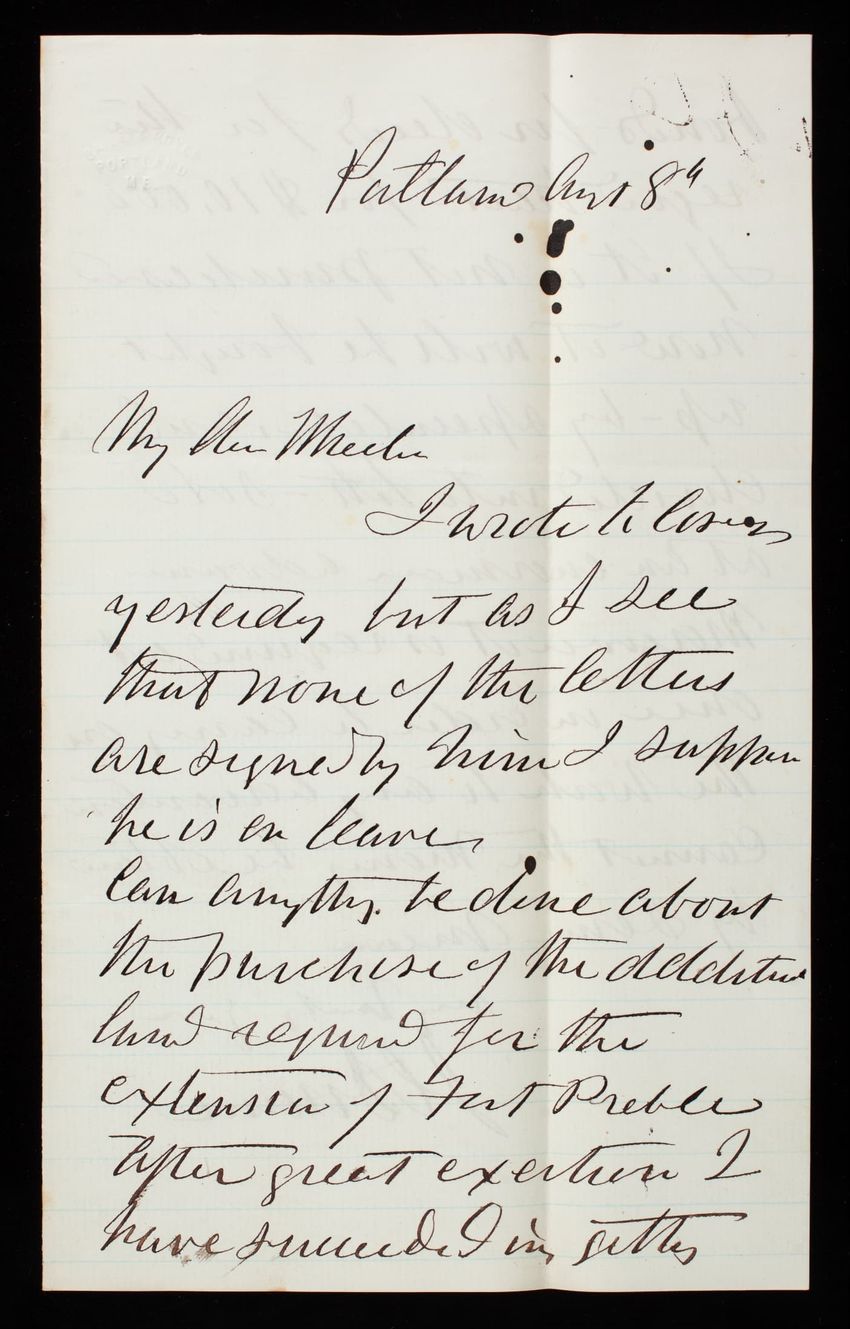 Portland Augt 8th
My Dear Wheeler
I wrote to Casey
yesterday but as I see
that none of the letters
are signed by him I suppose
he is on leave,
Can anything be done about
the purchase of the additional
land required for the
extension of Fort Preble
After great exertion I
have succeeded in getting